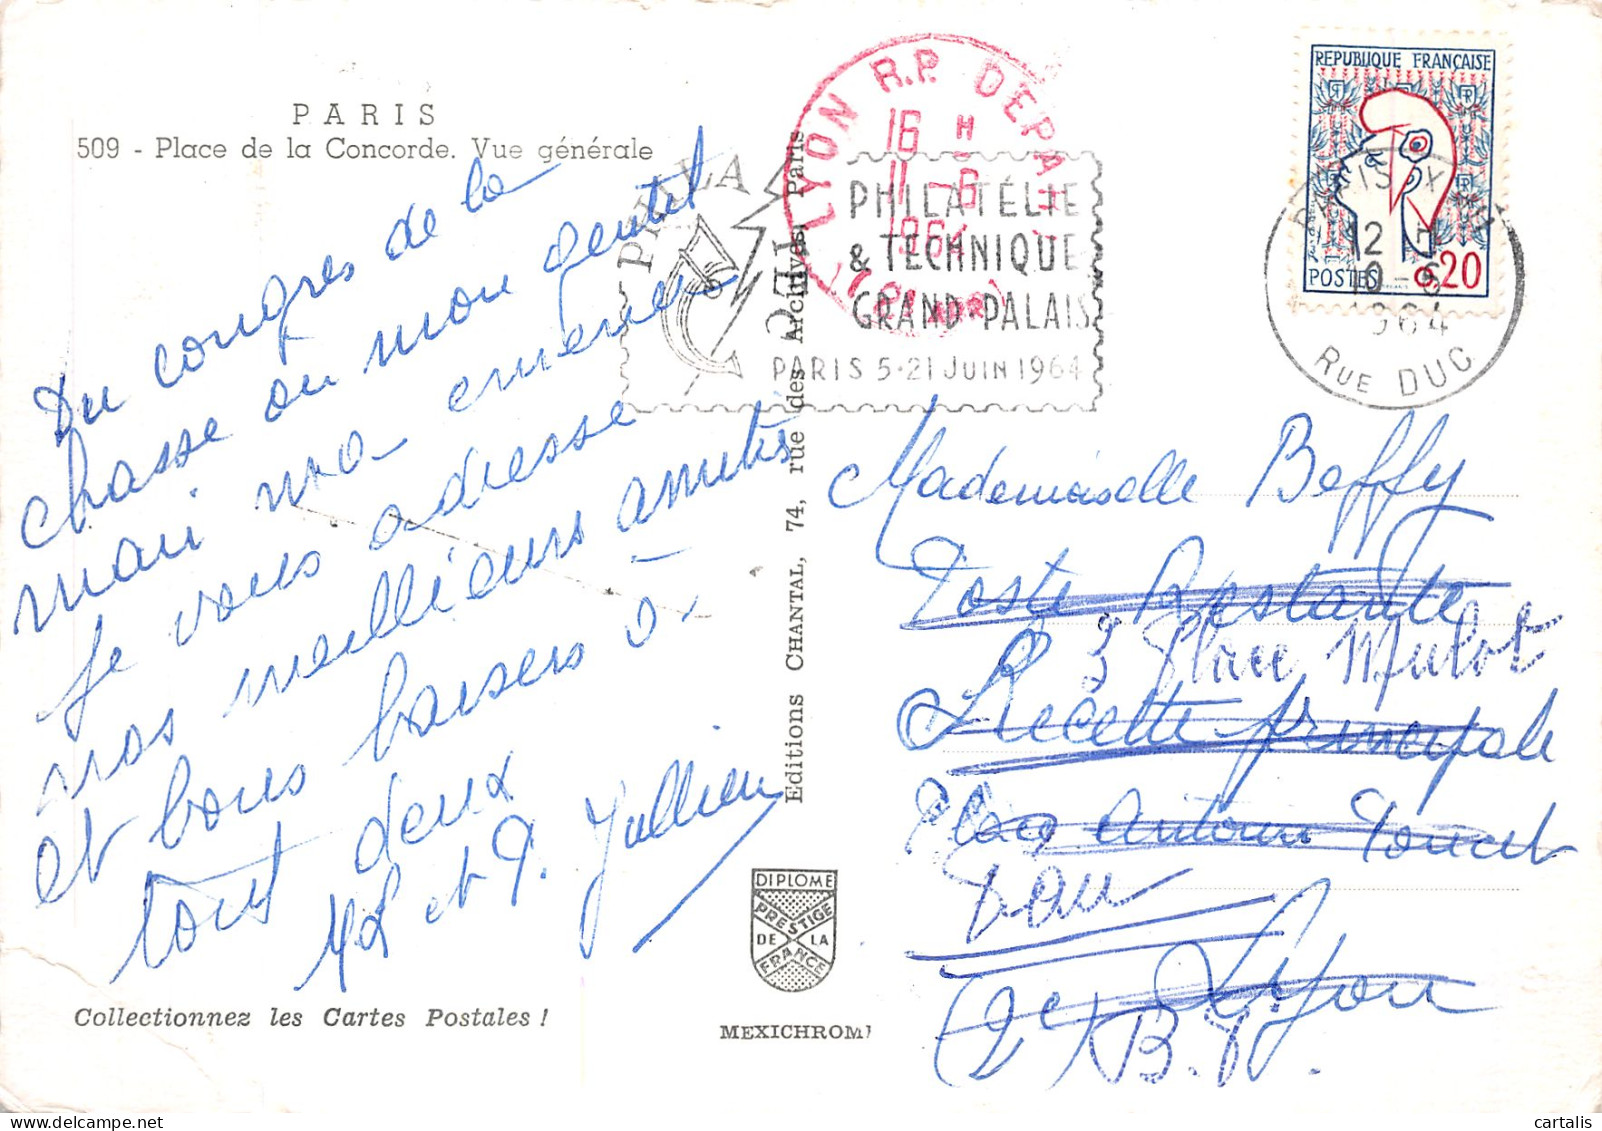 PARIS
509 - Place de la Concorde. Vue générale
Du congrès de la
chasse ou mon gentil
mari m'a emenée
je vous adresse
nos meilleurs amitiés
et bons baisers à
tout deux
et P. Jullien
Collectionnez les Cartes Postales !
Editions CHANTAL, 74, rue des Archives, Paris
DIPLOME
PRESTIGE
DE LA
FRANCE
MEXICHROME
PHILATEC
PHILATÉLIE
& TECHNIQUE
GRAND-PALAIS
PARIS 5·21 JUIN 1964
LYON R.P. DEPART
16 H
11 -6
1964
REPUBLIQUE FRANÇAISE
POSTES 0,20
PARIS
12 H
10-6
1964
RUE DUC
Mademoiselle Beffy
Poste Restante
3 Place Mulot
Recette principale
Place Antonin Poncet
Pau
(2e) Lyon
B.P.
cartalis